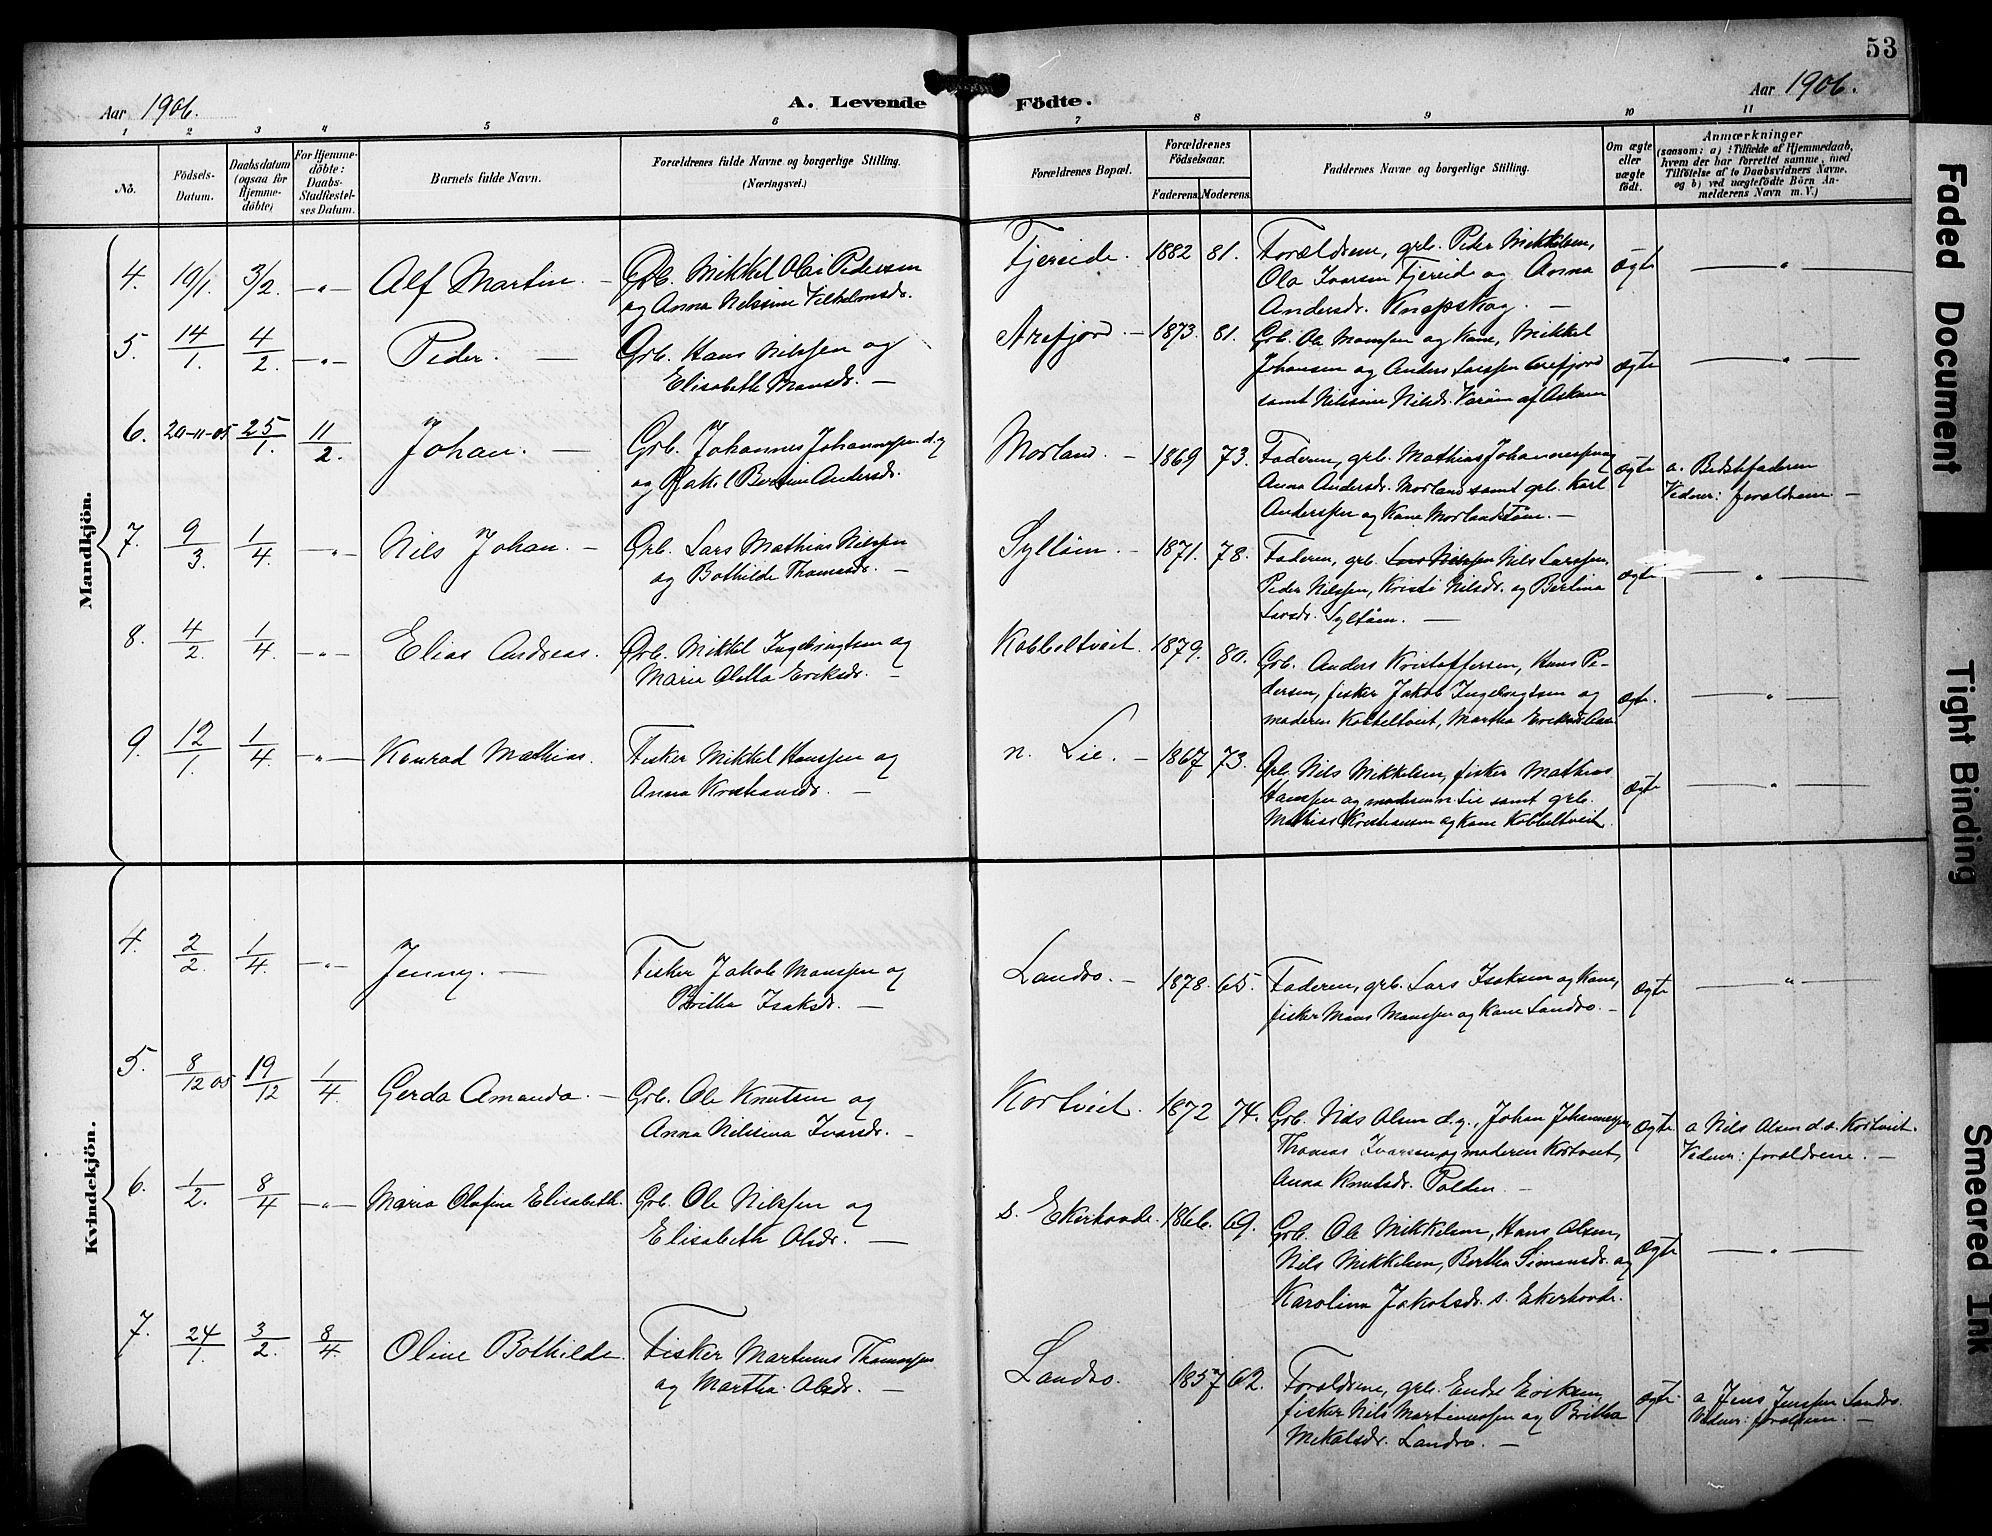 53
Aar 1906.
A. Levende Födte.
Aar 1906.
1 2 3 4 5 6 7 8 9 10 11
No.
Födsels-Datum.
Daabsdatum (ogsaa for Hjemme-döbte)
For Hjemme-döbte: Daabs-Stadfæstel-ses Datum.
Barnets fulde Navn.
Forældrenes fulde Navne og borgerlige Stilling.
(Næringsvei.)
Forældrenes Bopæl.
Forældrenes Födselsaar.
Faderens. Moderens.
Faddernes Navne og borgerlige Stilling.
Om ægte eller uægte födt.
Anmærkninger
(saasom: a) i Tilfælde af Hjemmedaab,
hvem der har forrettet samme, med
Tilföielse af to Daabsvidners Navne,
og b) ved uægtefödte Börn An-
melderens Navn m. V.)
Mandkjön.
4. 19/1. 3/2. —"— Alf Martin. — Grb. Mikkel Olai Pedersen
og Anna Nilssine Vilhelmsdr.
Fjereide. 1882 81. Forældrene, grb. Peder Mikkelsen,
Ola Ivarsen Fjereid og Anna
Andersdr. Knapskog. —
Ægte — " —
5. 14/1. 4/2. —"— Peder. — Grb. Hans Nilssen og
Elisabeth Monsdr. —
Arefjord — 1873. 81. Grb. Ole Monssen og Kone, Mikkel
Johansen og Anders Larssen Arefjord
samt Nilssine Nilsdr. af Asköen
Ægte — " —
6. 20-11-05 25/1. 11/2. Johan. — Grb. Johannes Johannessen d.y.
og Rakel Bertine Andersdr.
Morland. — 1869 73. Faderen, grb. Mathias Johannessen og
Anna Andersdr. Morland samt grb. Karl
Anderssen og Kone Morlandstöen. —
Ægte a. Bedstefaderen
Vidner: forældrene. —
7. 9/3. 1/4. —"— Nils Johan. — Grb. Lars Mathias Nilssen
og Bothilde Thomasdr. —
Syltöen. — 1871. 78. Faderen, grb. Lars Nilssen Nils Larssen,
Peder Nilssen, Kristi Nilsdr. og Bertina
Larsdr. Syltöen. —
Ægte — " —
8. 4/2. 1/4. —"— Elias Andreas. Grb. Mikkel Ingebrigtsen og
Marie Oletta Eriksdr. —
Kobbeltveit. 1879. 80. Grb. Anders Kristoffersen, Hans Pe-
dersen, fisker Jakob Ingebrigtsen og
moderen Kobbeltveit, Martha Eriksdr.
Ægte. — " —
9. 12/1. 1/4. —"— Konrad Mathias. Fisker Mikkel Hanssen og
Anna Kristiansdr. —
n. Lie. — 1867 73. Grb. Nils Mikkelsen, fisker Mathias
Hanssen og moderen n. Lie samt grb.
Mathias Kristiansen og Kone Kobbeltveit.
Ægte — " —
Kvindekjön.
4. 2/2. 1/4. —"— Jenny. — Fisker Jakob Monssen og
Britha Isaksdr. —
Landro. — 1878. 65. Faderen, grb. Lars Isaksen og Kone,
fisker Mons Monssen og Kone Landro. —
Ægte — " —
5. 8/12 05 19/12 1/4. Gerda Amanda. — Grb. Ole Knutsen og
Anna Nilssina Ivarsdr. —
Kortveit. 1872 74. Grb. Nils Olsen d.y., Johan Johannessen,
Thomas Ivarsen og moderen Kortveit,
Anna Knutsdr. Polden. —
Ægte a Nils Olsen d.æ. Kortveit.
Vidner: forældrene. —
6. 1/2. 8/4 —"— Maria Olafina Elisabeth. Grb. Ole Nilssen og
Elisabeth Olsdr. —
s. Ekerhovde. 1866. 69. Grb. Ole Mikkelsen, Hans Olsen,
Nils Mikkelsen, Bertha Simonsdr. og
Karolina Jakobsdr. s. Ekerhovde.
Ægte — " —
7. 24/1. 3/2. 8/4 Oline Bothilde. Fisker Martinus Thomassen
og Martha Olsdr. —
Landro. 1857 62. Forældrene, grb. Endre Eriksen,
fisker Nils Martinussen og Britha
Mikalsdr. Landro. —
Ægte. a Jens Jenssen Landro.
Vidner: forældrene. —
Faded Document
Tight Binding
Smeared Ink